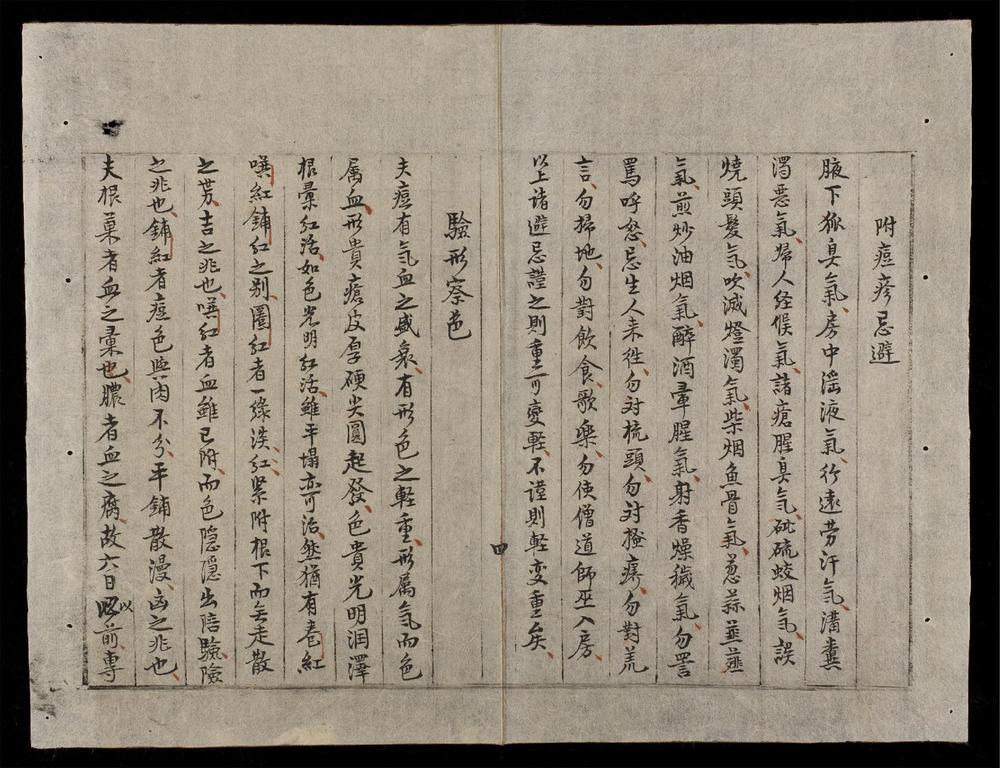 附痘疹忌避
腋下狐臭氣房中滛液氣行遠劳汗气溝糞
濁惡氣婦人经候气諸瘡腥臭气硫蛟烟气誤
燒頭髮气吹滅燈濁氣柴烟魚骨氣葱蒜韮薤
氣煎炒油烟氣醉酒葷腥氣射香燥穢氣勿詈
罵呼怒忌生人来徃勿对梳頭勿对搔癢勿對荒
言勿掃地勿對飲食歌楽勿使僧道師巫入房
以上诸避忌謹之則重可变軽不謹則軽变重矣
四
驗形察色
夫痘有气血之盛衰有形色之軽重形属气而色
属血形贵瘡皮厚硬尖圓起發色貴光明润澤
根窠红活如色光明红活雖平塌亦可治然猶有圈紅
噀紅鋪红之别圈红者一線淡红紧附根下而无走散
之势吉之兆也噀红者血雖已附而色隐隐出陷驗險
之兆也鋪紅者痘色與肉不分平鋪散漫凶之兆也
夫根菓者血之稟也膿者血之腐故六日以前專